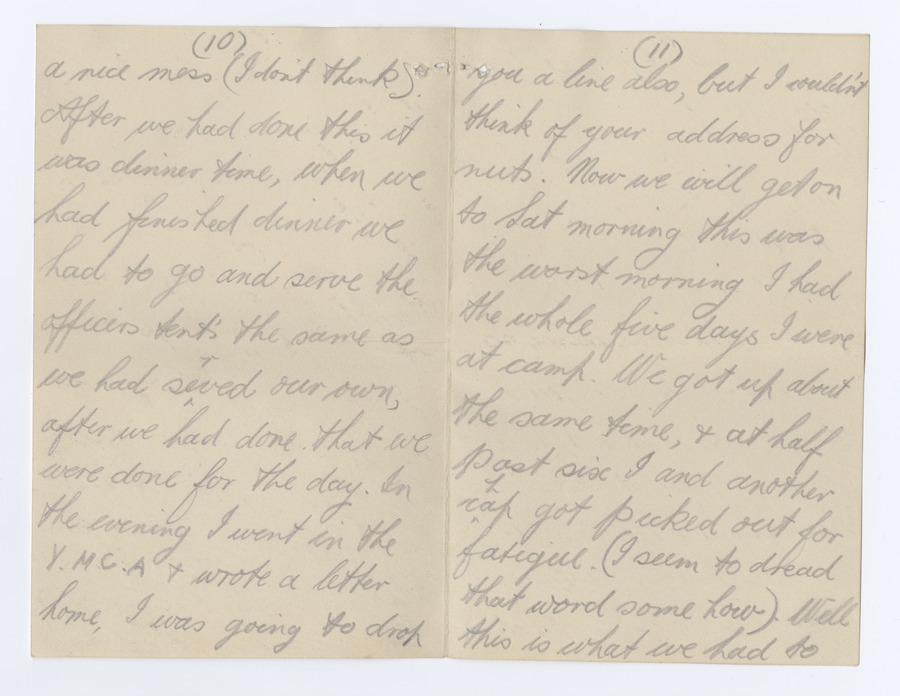 (10)
a nice mess (I don't think).
After we had done this it
was dinner time, when we
had finished dinner we
had to go and serve the
officers tent's the same as
we had served our own,
after we had done that we
were done for the day. In
the evening I went in the
Y.M.C.A & wrote a letter
home, I was going to drop
(11)
you a line also, but I wouldn't
think of your address for
nuts. Now we will get on
to Sat morning this was
the worst morning I had
the whole five days I were
at camp. We got up about
the same time, & at half
past six I and another
chap got picked out for
fatigue. (I seem to dread
that word some how). Well
this is what we had to